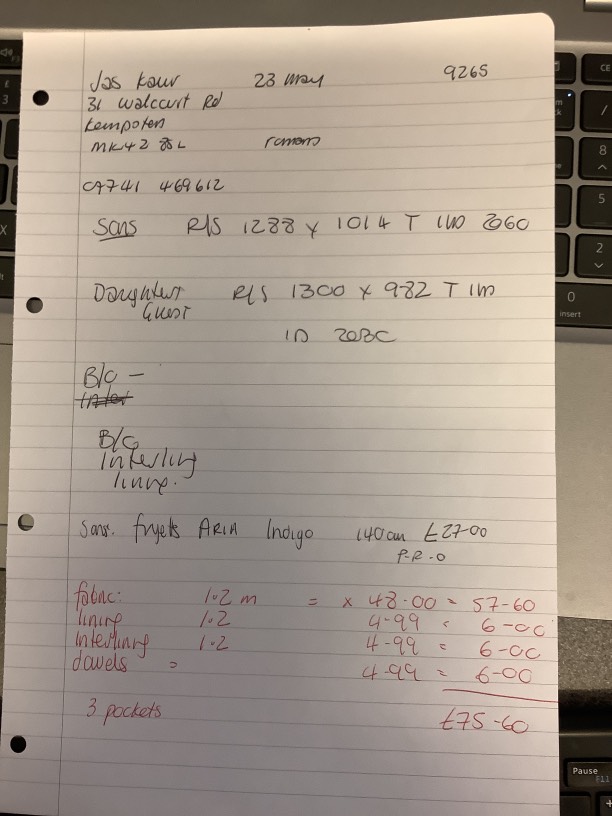 Jas Kaur 23 May 9265
31 Walcourt Rd
Kempston
MK42 8SL romans
07741 469612
Sons R/S 1288 x 1014 T IND 2060
Daughters R/S 1300 x 982 T IM
Guest
IN 20BC
B/O -
B/O
Interling
lining.
Sons. fryetts ARIA Indigo 140cm £27-00
P-R-O
fabric: 1.2 m = x 48-00 = 57-60
lining 1.2 4-99 = 6-00
Interlining 1.2 4-99 = 6-00
dowels = 4-99 = 6-00
3 pockets £75-60
3
X
CE
/
8
5
2
0
insert
Pause
F11
+